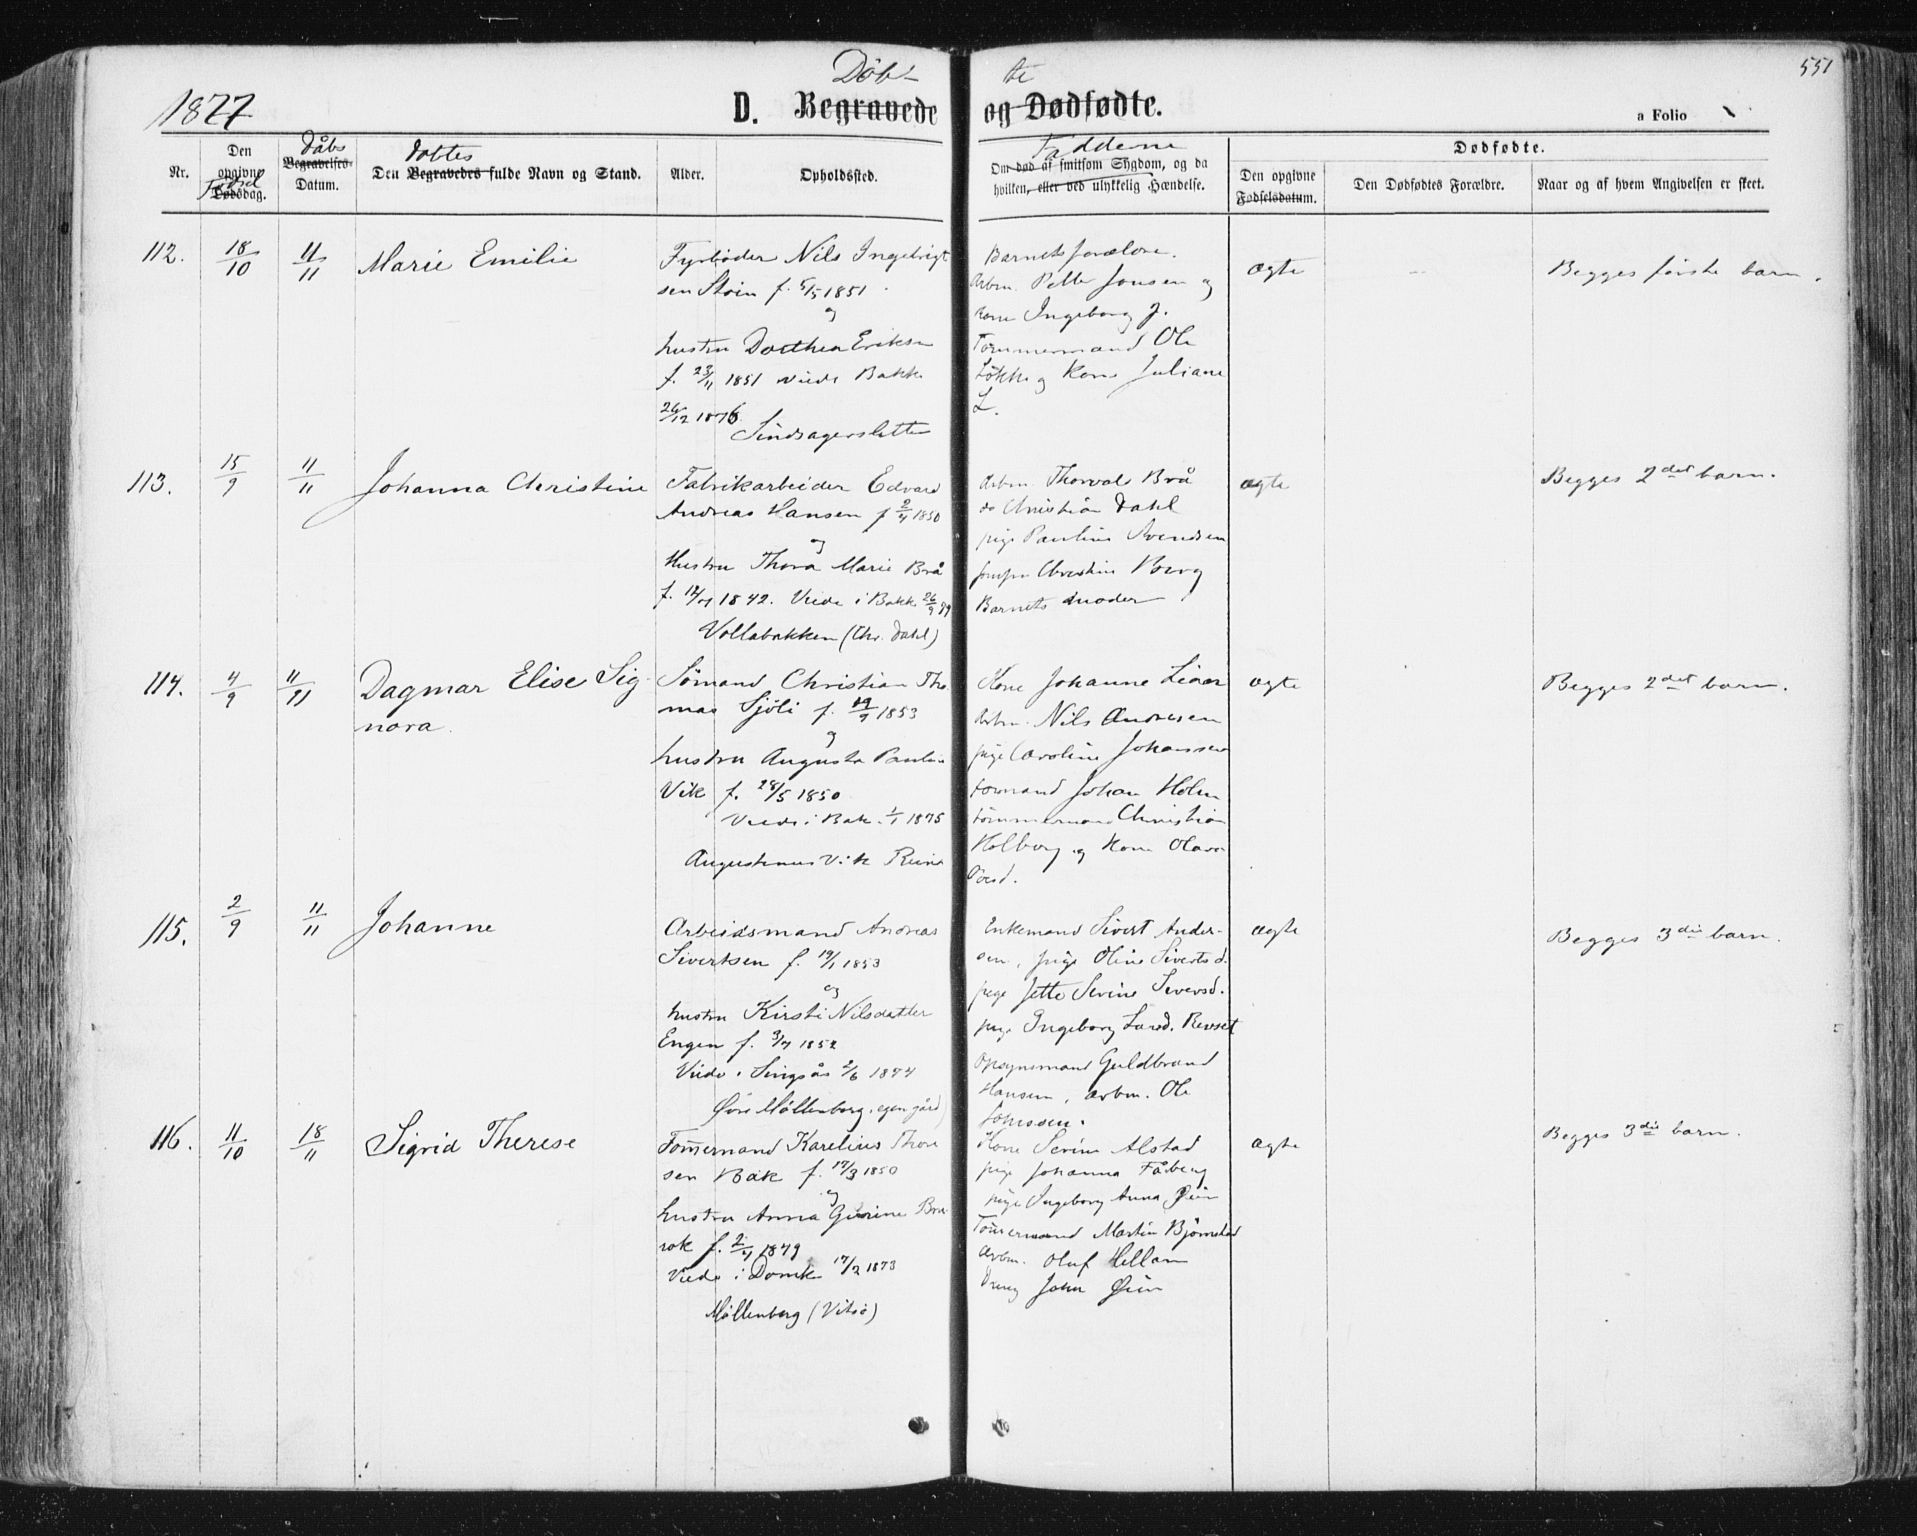 Døb-
te
551
1877
D. Begravede
og Dødfødte.
a Folio
Nr.
Den opgivne Dødsdag.
Fødsel
Dåbs
Begravelses-Datum.
Døbtes
Den Begravedes fulde Navn og Stand.
Alder.
Opholdssted.
Fadderne
Om død af smitsom Sygdom, og da
hvilken, eller ved ulykkelig Hændelse.
Dødfødte.
Den opgivne
Fødselsdatum.
Den Dødfødtes Forældre.
Naar og af hvem Angivelsen er skeet.
112.
18/10
11/11
Marie Emilie
Fyrbøder Nils Ingebrigt
sen Stoin f. 5/5 1851.
og
hustru Dorthea Eriksen
f. 23/11 1851 viede Bakke
26/12 1876
Sindsagerslette
Barnets forældre.
Arbm. Petter Jonsen og
Kone Ingeborg J.
Tømmermand Ole
Løkke og Kone Juliane
L.
ægte
Begges første barn.
113.
15/9
11/11
Johanna Christine
Fabrikarbeider Edvard
Andreas Hansen f 2/4 1850
og
Hustru Thora Marie Brå
f. 12/4 1842. Viede i Bakk 26/9
Vollabakken (Chr. Dahl)
Arbm. Thorvald Brå
do Christian Dahl
pige Pauline Svendsen
Jomfru Christine Borg
Barnets moder
ægte
Begges 2det barn.
114.
4/9
11/11
Dagmar Elise Sig-
nora.
Sømand Christian Tho-
mas Sjøli f. 19/9 1853
og
hustru Augusta Paulin
Vik f. 28/5 1850
Viede i Bak. 1/1 1875
Augustinus Vik Reina
Kone Johanne Lian
Arbm. Nils Andresen
pige Caroline Johannsen
tømmand Johan Holm
tømmermand Christian
Holberg og Kone Olava
ægte
Begges 2det barn.
115.
2/9
11/11
Johanne
Arbeidsmand Andreas
Sivertsen f. 19/1 1853
og
hustru Kirsti Nilsdatter
Engen f. 3/7 1852
Viede i Singsås 2/6 1874
Øvre Møllenberg, egen gård)
Enkemand Sivert Ander-
sen, pige Oline Sivertsd.
pige Jette Serine Siversd.
pige Ingeborg Larsd. Renset
Opsynsmand Guldbrand
Hansen, arbm. Ole
Johnssen.
ægte
Begges 3die barn.
116.
11/10
18/11
Sigrid Therese
Tømermand Karelius Thore
sen Bak f. 17/3 1850
og
hustru Anna Gurine Bru-
rok f. 2/4 1879
Viede i Domk 17/2 1873
Møllenberg (Vitsø)
Kone Serine Alstad
pige Johanna Fåberg
pige Ingeborg Anna Øien
Tømermand Martin Bjørnstad
Arbm. Oluf Hellam
Dreng John Øien
ægte
Begges 3die barn.